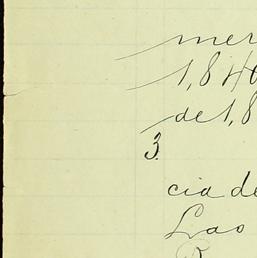 mer
1,840
de 1,8
3.
cia de
Lao